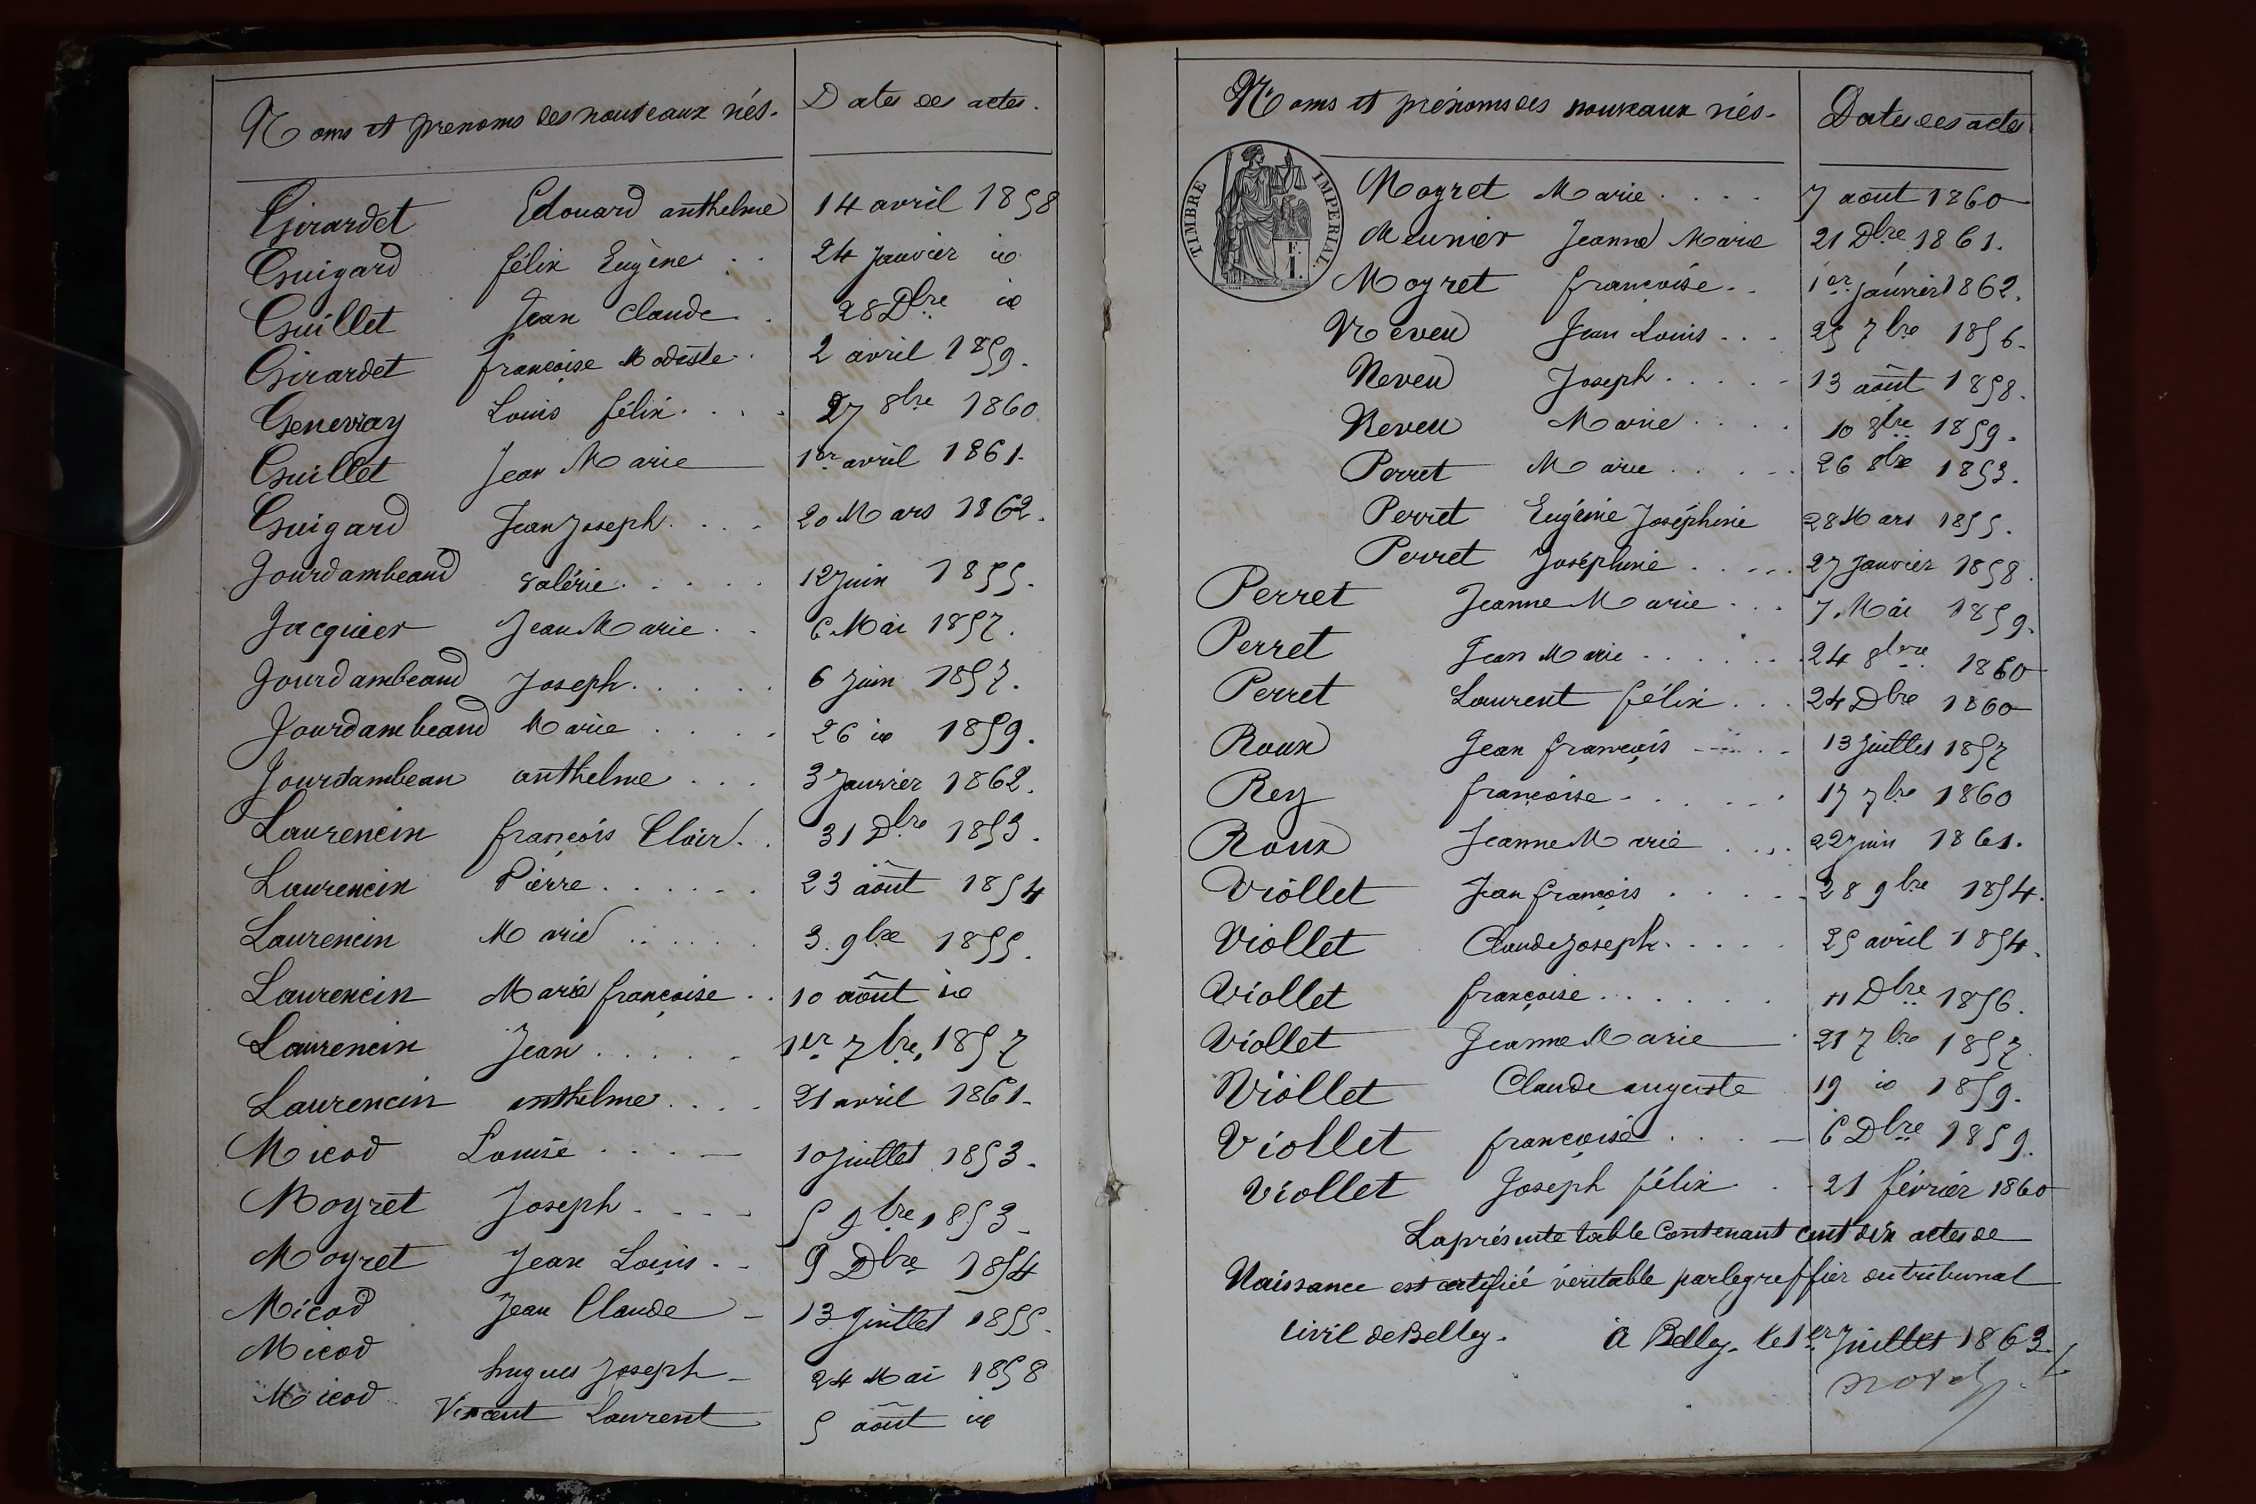 Noms et prenoms des nouveaux nés. Dates des actes.
Girardet Edouard anthelme 14 avril 1858
Guigard félix Eugène 24 Janvier id
Guillet Jean Claude 28 Dbre id
Girardet françoise Modeste 2 avril 1859.
Genevray Louis félix 27 8bre 1860
Guillet Jean Marie 1er avril 1861.
Guigard Jean Joseph 20 Mars 1862.
Jourdambeaud Valérie 12 Juin 1855.
Jacquier Jean Marie 6 Mai 1857.
Jourdambeaud Joseph 6 Juin 1857.
Jourdambeaud Marie 26 id 1859.
Jourdambeau anthelme 3 Janvier 1862.
Laurencin françois Clair 31 Dbre 1853.
Laurencin Pierre 23 août 1854
Laurencin Marie 3. 9bre 1855.
Laurencin Marie françoise 10 août id
Laurencin Jean 1er 7bre, 1857
Laurencin anthelme 21 avril 1861.
Micod Louise 10 Juillet 1853.
Moyret Joseph 5 9bre 1853
Moyret Jean Louis 9 Dbre 1854
Micod Jean Claude 13 Juillet 1855.
Micod hugues Joseph 24 Mai 1858
Micod Vincent Laurent 5 août id
Noms et prénoms des nouveaux nés. Dates des actes
TIMBRE IMPERIAL
E.
1.
Moyret Marie 7 août 1860
Meunier Jeanne Marie 21 Dbre 1861.
Moyret françoise 1er Janvier 1862.
Neveu Jean Louis 25 7bre 1856.
Neveu Joseph 13 août 1858.
Neveu Marie 10 8bre 1859.
Perret Marie 26 8bre 1853.
Perret Eugénie Joséphine 28 Mars 1855.
Perret Joséphine 27 Janvier 1858.
Perret Jeanne Marie 7. Mai 1859.
Perret Jean Marie 24 8bre 1860
Perret Laurent félix 24 Dbre 1860
Roux Jean françois 13 Juillet 1857
Rey françoise 17 7bre 1860
Roux Jeanne Marie 22 Juin 1861.
Viollet Jean françois 28 9bre 1854.
Viollet Claude Joseph 25 avril 1854.
Viollet françoise 11 Dbre 1856.
Viollet Jeanne Marie 21 7bre 1857.
Viollet Claude auguste 19 id 1859.
Viollet françoise 6 Dbre 1859.
Viollet Joseph félix 21 février 1860
La présente table Contenant Cent dix actes de
Naissance est certifiée véritable par le greffier du tribunal
Civil de Belley. A Belley, le 1er Juillet 1863.